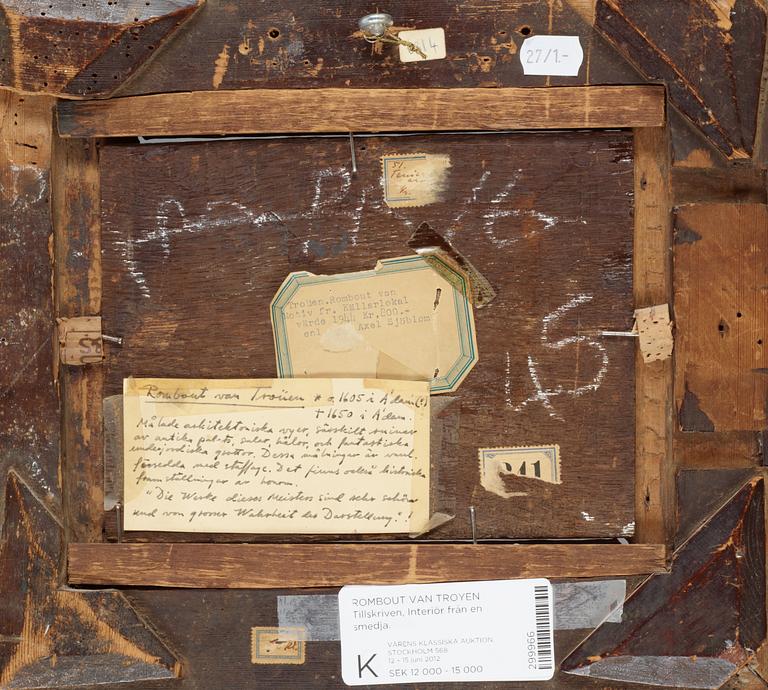 14
27/1.-
51.
Troüen.Rombout von
Motiv fr. Källarlokal
värde 1944 Kr.800.-
enl Axel Sjöblom
Rombout van Troüen * o. 1605 i A'dam (?)
† 1650 i A'dam.
Målade arkitektoniska vyer, särskilt ruiner
av antika palats, salar, hålor, och fantastiska
underjordiska grottor. Dessa målningar är vanl.
försedda med staffage. Det finns också historiska
framställningar av honom.
"Die Werke dieses Meisters sind sehr schön
und von grosser Wahrheit des Darstellung"!
45
241
ROMBOUT VAN TROYEN
Tillskriven, Interiör från en
smedja.
VÅRENS KLASSISKA AUKTION,
STOCKHOLM 568
12 - 15 juni 2012
K SEK 12 000 - 15 000
299966